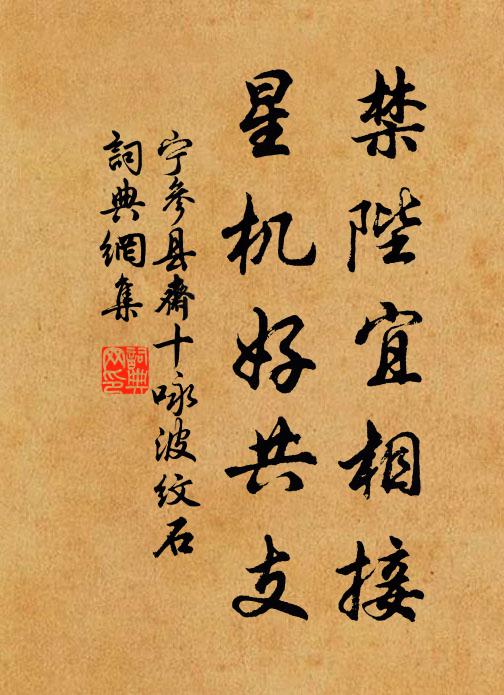 禁陛宜相接
星机好共支
宁参县斋十咏波纹石
詞典網集
詞典網印